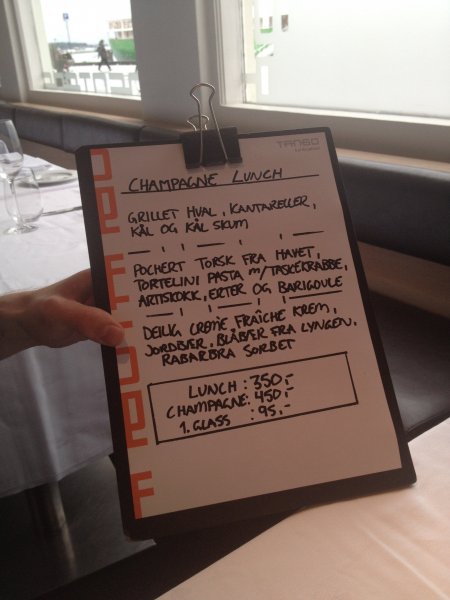 TANGO
CHAMPAGNE LUNCH
GRILLET HVAL, KANTARELLER,
KÅL OG KÅL SKUM
POCHERT TORSK FRA HAVET,
TORTELINI PASTA M/TASKEKRABBE,
ARTISKOKK, ERTER OG BARIGOULE
DEILIG CREME, FRAÎCHE KREM,
JORDBÆR, BLÅBÆR FRA LYNGEN,
RABARBRA SORBET
LUNCH : 350,-
CHAMPAGNE: 450,-
1. GLASS : 95,-